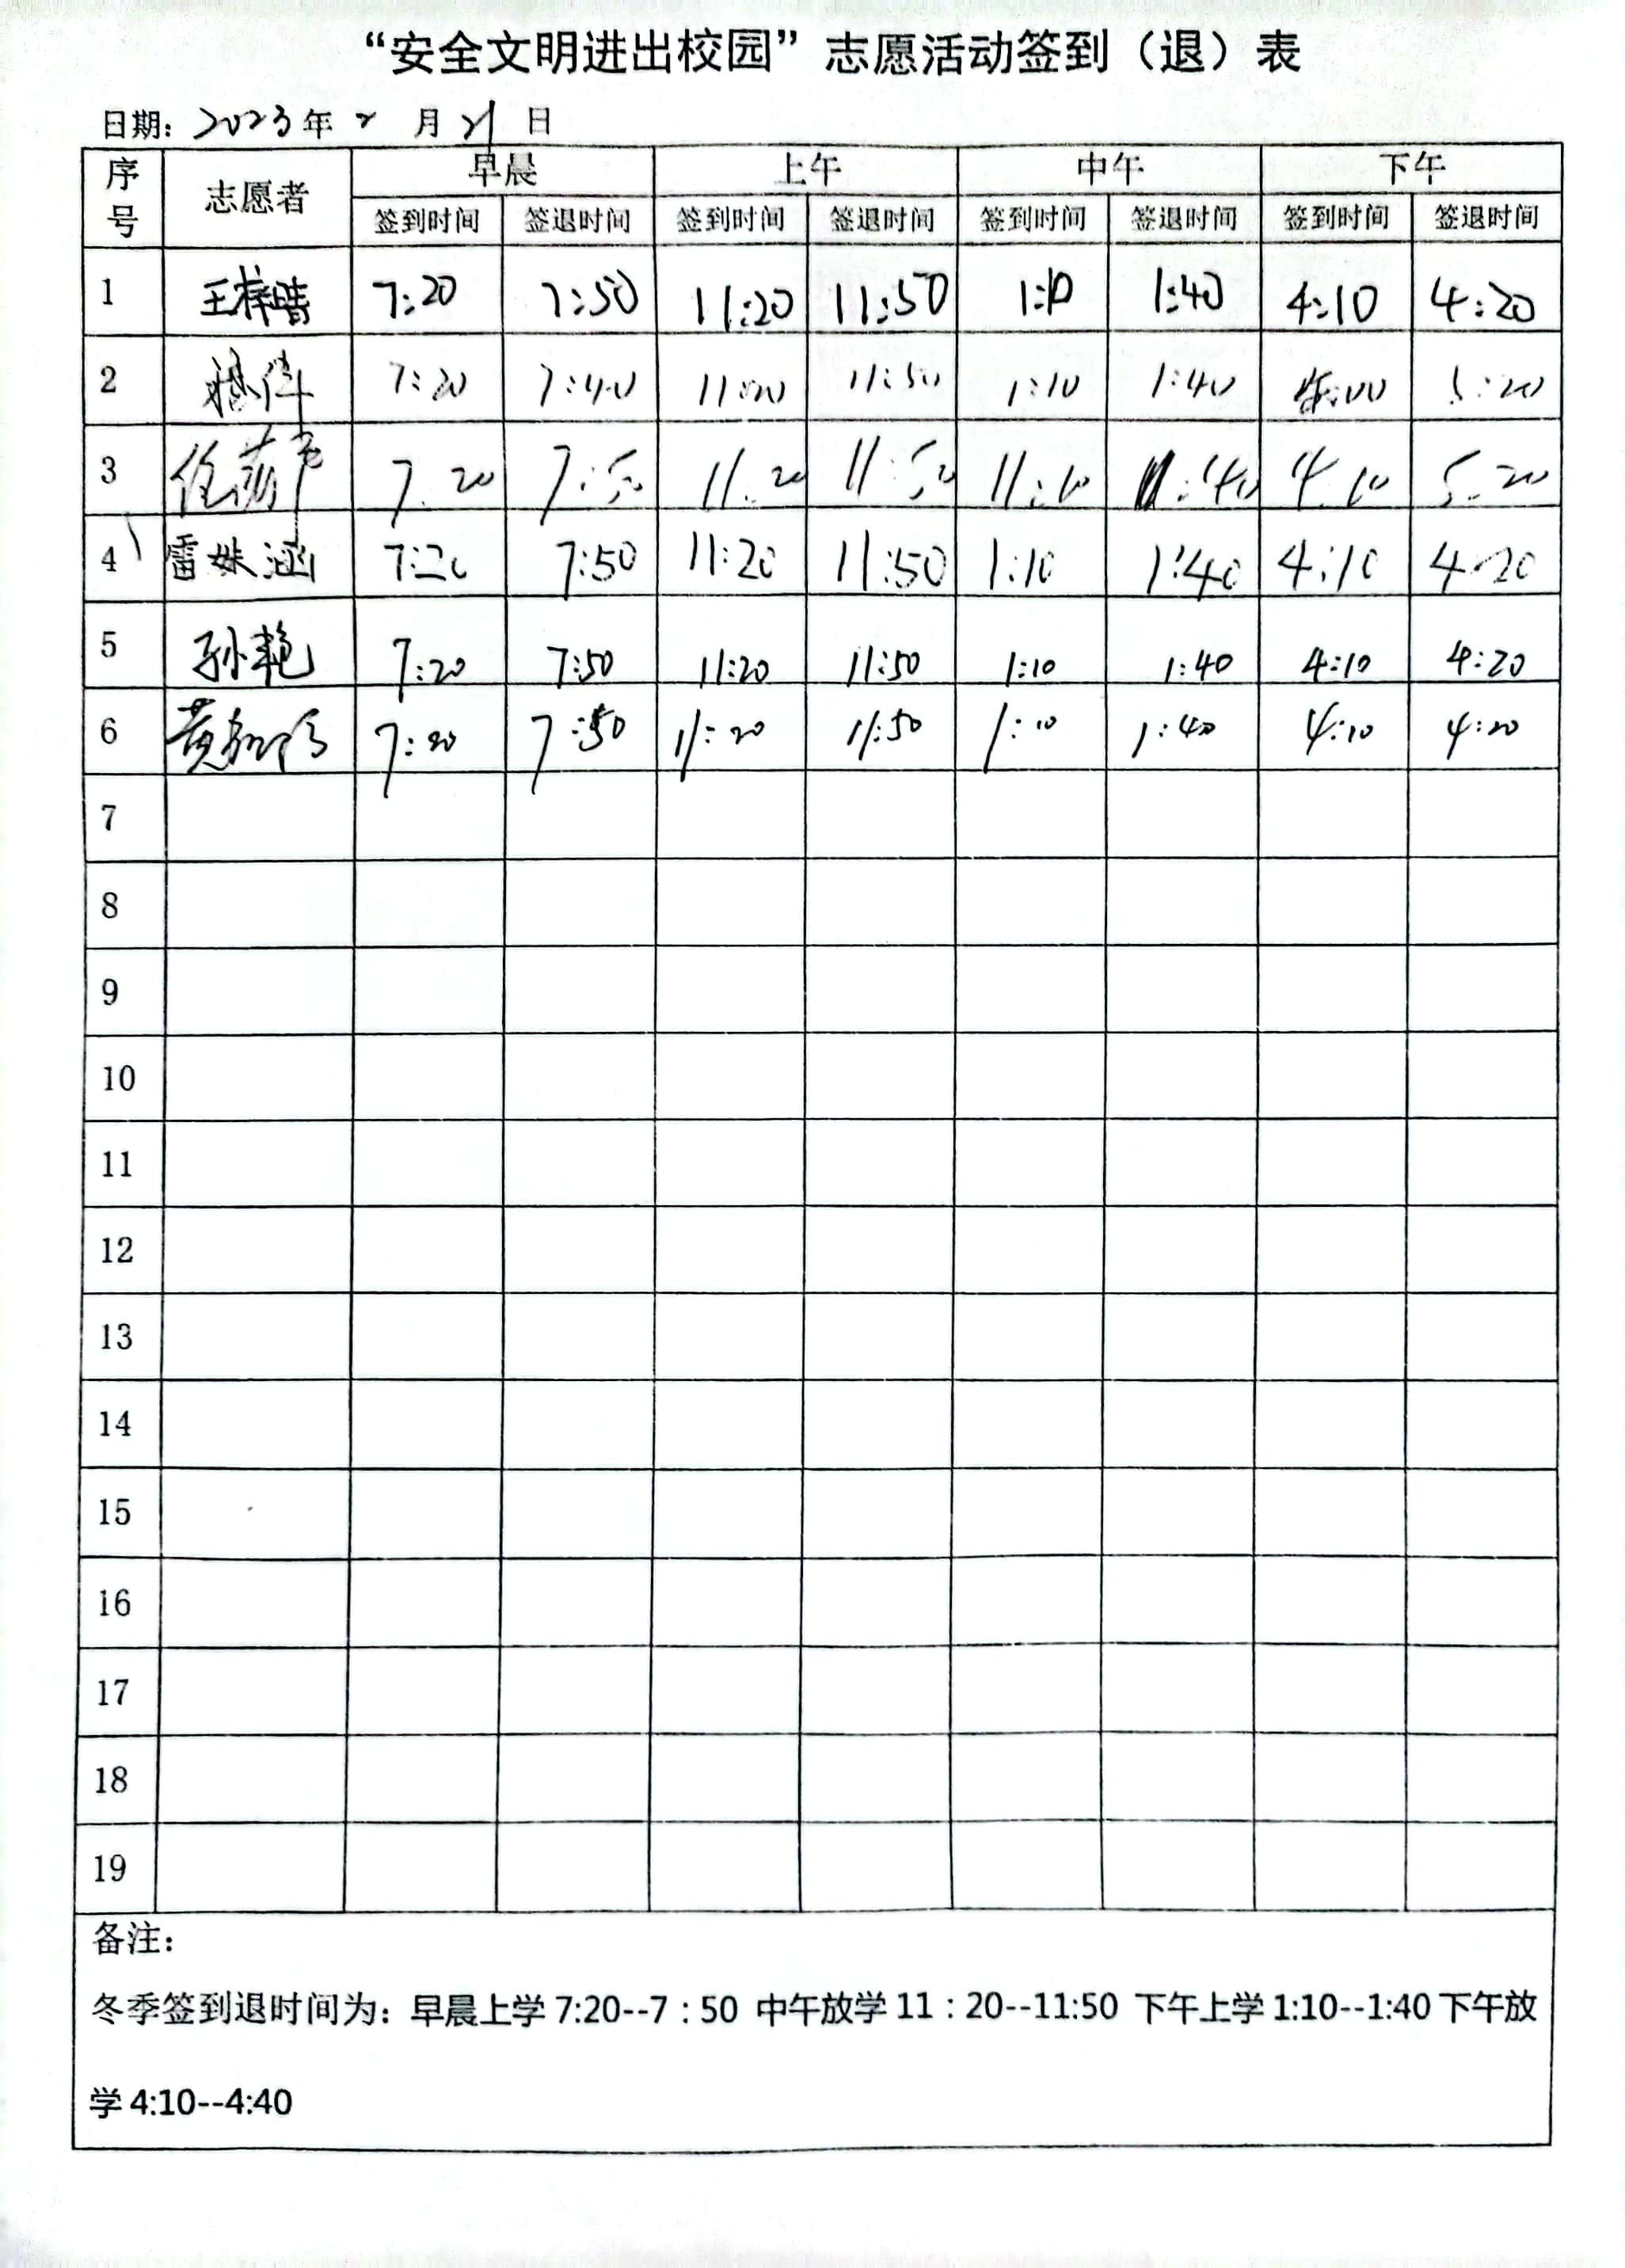 “安全文明进出校园”志愿活动签到（退）表
日期：2023年2月21日
序号 志愿者 早晨 上午 中午 下午
签到时间 签退时间 签到时间 签退时间 签到时间 签退时间 签到时间 签退时间
1 王梓晴 7:20 7:50 11:20 11:50 1:10 1:40 4:10 4:20
2 7:20 7:40 11:20 11:50 1:10 1:40 5:20
3 7:20 7:50 11:20 11:50 11:10 :40 4:10 5:20
4 雷姝涵 7:20 7:50 11:20 11:50 1:10 1:40 4:10 4:20
5 孙艳 7:20 7:50 11:20 11:50 1:10 1:40 4:10 4:20
6 黄 7:20 7:50 11:20 11:50 1:10 1:40 4:10 4:20
7
8
9
10
11
12
13
14
15
16
17
18
19
备注：
冬季签到退时间为：早晨上学7:20--7：50 中午放学11：20--11:50 下午上学1:10--1:40下午放
学4:10--4:40